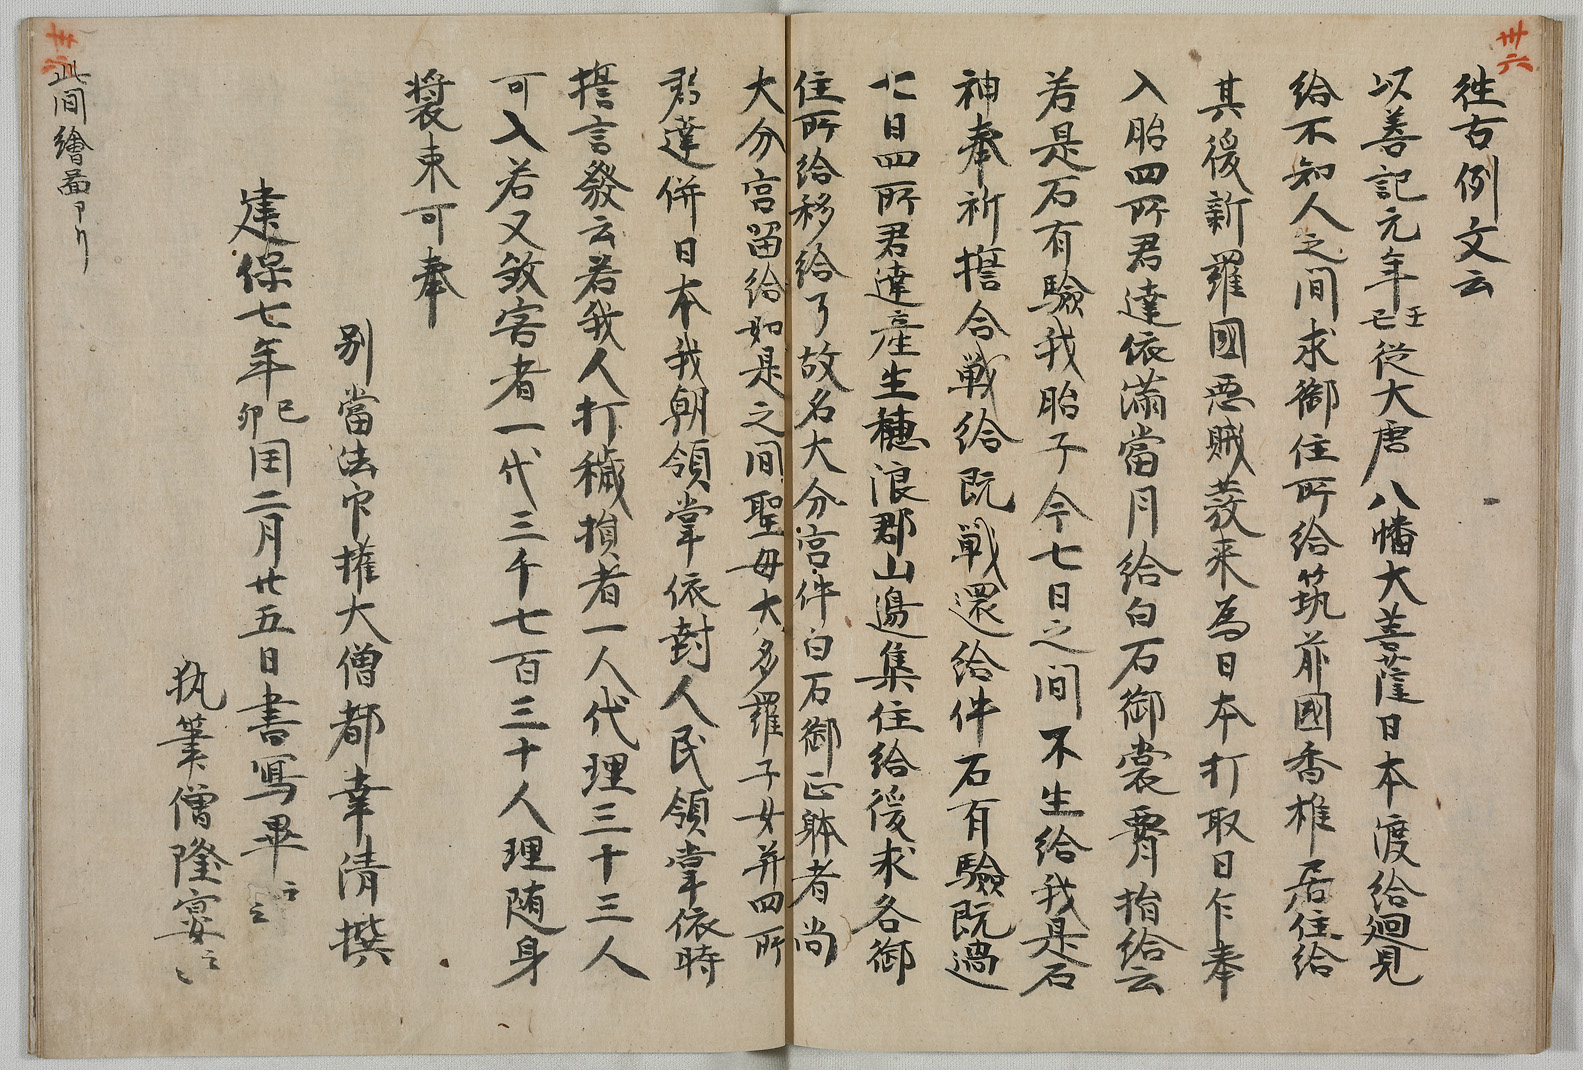 卅六
徃古例文云
以善記元年壬巳従大唐八幡大菩薩日本渡給廻見
給不知人之間求御住所給筑前國香椎居住給
其後新羅國悪賊發来為日本打取日乍奉
入胎四所君達依満當月給白石御裳腰指給云
若是石有驗我胎子今七日之间不生給我是石
神奉祈擔合戦給既戦還給件石有驗既過
七日四所君達産生穂浪郡山邉集住給後求各御
住所給移給了故名大分宮件白石御正躰者尚
大分宮留給如是之间聖母大多羅子女并四所
君達併日本我朝領掌依封人民領掌依時
擔言發云若我人打穢損者一人代理三十三人
可入若又敓害者一代三千七百三十人理随身
装束可奉
別當法印権大僧都幸清撰
建保七年己卯囯二月廿五日書寫畢
執筆僧隆宴
此间繪圖アリ
卅六